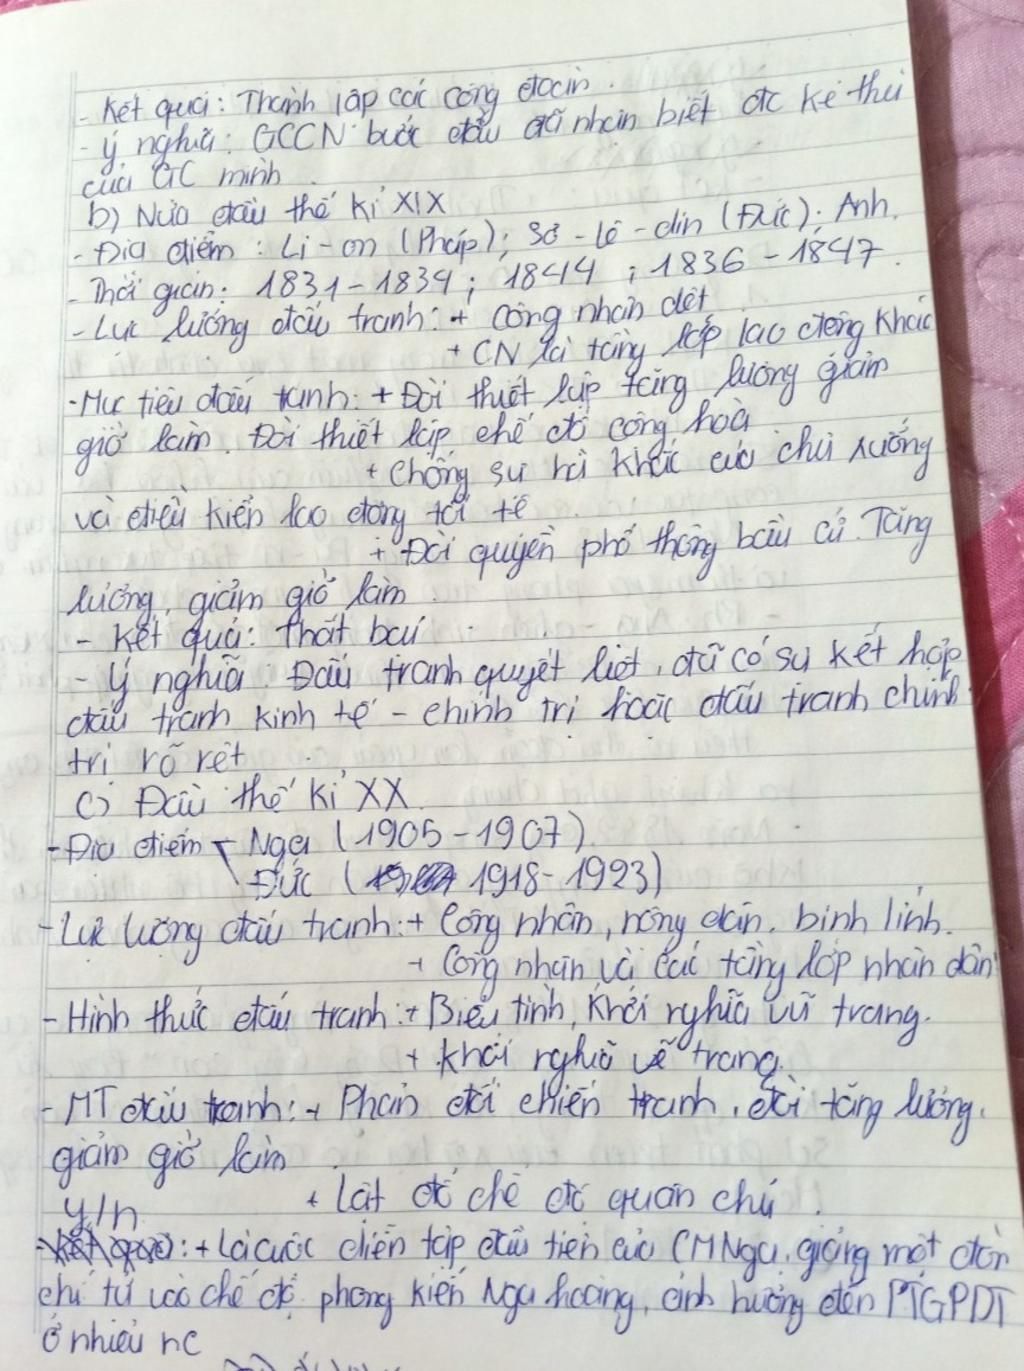 - Kết quả: Thành lập các công đoàn.
- ý nghĩa: GCCN bước đầu đã nhận biết đc kẻ thù
của GC mình.
b) Nửa đầu thế kỉ XIX
- Địa điểm: Li-on (Pháp); Sơ-lê-din (Đức); Anh.
- Thời gian: 1831-1834; 1844; 1836-1847.
- Lực lượng đấu tranh: + Công nhân dệt
+ CN là tầng lớp lao động khác
- Mục tiêu đấu tranh: + Đòi thiết lập tăng lương giảm
giờ làm. Đòi thiết lập chế độ cộng hoà
+ Chống sự hà khắc của chủ xưởng
và điều kiện lao động tồi tệ
+ Đòi quyền phổ thông bầu cử. Tăng
lương, giảm giờ làm.
- Kết quả: Thất bại.
- ý nghĩa: Đấu tranh quyết liệt, đã có sự kết hợp
đấu tranh kinh tế - chính trị hoặc đấu tranh chính
trị rõ rệt.
c) Đầu thế kỉ XX.
- Địa điểm Nga (1905-1907)
Đức (1918-1923)
- Lực lượng đấu tranh: + Công nhân, nông dân, binh lính.
+ Công nhân và các tầng lớp nhân dân
- Hình thức đấu tranh: + Biểu tình, khởi nghĩa vũ trang.
+ khởi nghĩa vẽ trang.
- MT đấu tranh: + Phản đối chiến tranh, đòi tăng lương,
giảm giờ làm
+ Lật đổ chế độ quân chủ.
Y/n
: + Là cuộc diễn tập đầu tiên của CM Nga, giáng một đòn
chí tử vào chế độ phong kiến Nga hoàng, ảnh hưởng đến PTGPDT
ở nhiều nc